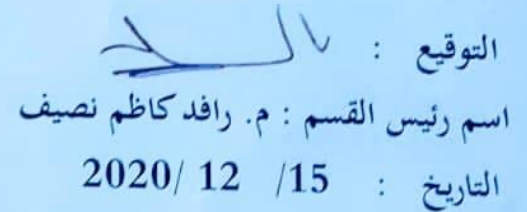 التوقيع :
اسم رئيس القسم : م. رافد كاظم نصيف
التاريخ : 15/ 12 /2020